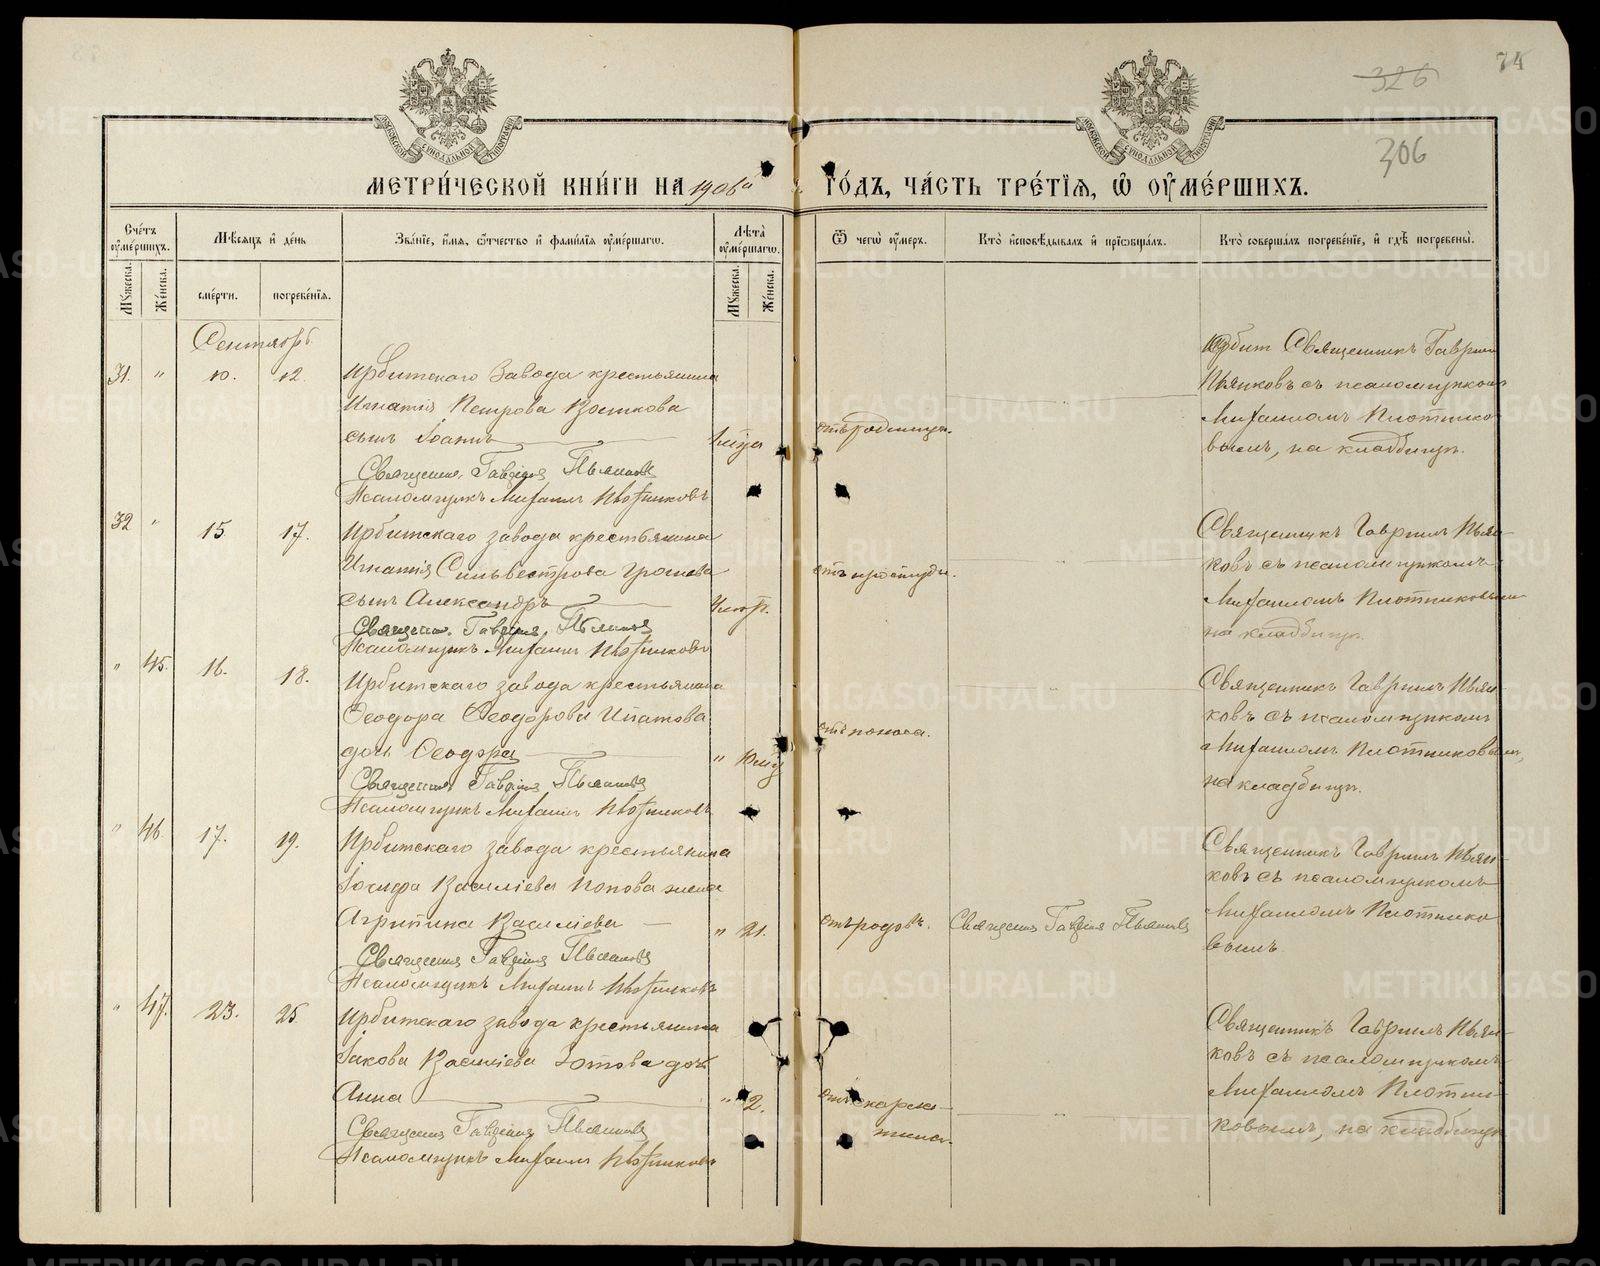 326
74
306
МОСКОВСКОЙ СѴНОДАЛЬНОЙ ТИПОГРАФІИ
МОСКОВСКОЙ СѴНОДАЛЬНОЙ ТИПОГРАФІИ
МЕТРИ́ЧЕСКОЙ КНИ́ГИ НА 1906й ГО́ДЪ, ЧА́СТЬ ТРЕ́ТІѦ, Ѿ ОУМЕ́РШИХЪ.
Сче́тъ оуме́ршихъ.
Мѣ́сяцъ и҆ де́нь
Зва́нїе, и҆́мя, ѻ҆́тчество и҆ фами́лїя оуме́ршагѡ.
Лѣ́та оуме́ршагѡ.
Ѿ чегѡ̀ оу́меръ.
Кто̀ и҆сповѣ́дывалъ и҆ прїѡбща́лъ.
Кто̀ соверша́лъ погребе́нїе, и҆ гдѣ̀ погребены̀.
Мꙋжеска.
Же́нска.
сме́рти.
погребе́нїя.
Мꙋжеска.
Же́нска.
Сентябрь
31. " 10. 12.
Ирбитскаго Завода крестьянина
Игнатія Петрова
сынъ Іоаннъ
Священн. Гавріилъ Пьянковъ
Псаломщикъ Михаилъ Плотниковъ
отъ родимца.
Священникъ Гавріилъ
Пьянковъ съ псаломщикомъ
Михаиломъ Плотнико-
вымъ, на кладбищѣ.
32 " 15. 17.
Ирбитскаго завода крестьянина
Игнатія Сильвестрова
сынъ Александръ
Священн. Гавріилъ Пьянковъ
Псаломщикъ Михаилъ Плотниковъ
отъ простуды.
Священникъ Гавріилъ Пьян-
ковъ съ псаломщикомъ
Михаиломъ Плотниковымъ
на кладбищѣ.
" 45. 16. 18.
Ирбитскаго завода крестьянина
Ѳеодора Ѳеодорова Ипатова
дочь Ѳеодора
Священникъ Гавріилъ Пьянковъ
Псаломщикъ Михаилъ Плотниковъ
" отъ поноса.
Священникъ Гавріилъ Пьян-
ковъ съ псаломщикомъ
Михаиломъ Плотниковымъ,
на кладбищѣ.
" 46. 17. 19.
Ирбитскаго завода крестьянина
Іосифа Василіева Попова жена
Агрипина Василіева
Священникъ Гавріилъ Пьянковъ
Псаломщикъ Михаилъ Плотниковъ
" 21.
отъ родовъ.
Священникъ Гавріилъ Пьянковъ
Священникъ Гавріилъ Пьян-
ковъ съ псаломщикомъ
Михаиломъ Плотнико-
вымъ.
" 47. 23. 25.
Ирбитскаго завода крестьянина
Іакова Василіева Зотова дочь
Анна
Священникъ Гавріилъ Пьянковъ
Псаломщикъ Михаилъ Плотниковъ
" 2.
отъ скарла-
тины.
Священникъ Гавріилъ Пьян-
ковъ съ псаломщикомъ
Михаиломъ Плотни-
ковымъ, на кладбищѣ
METRIKI.GASO-URAL.RU